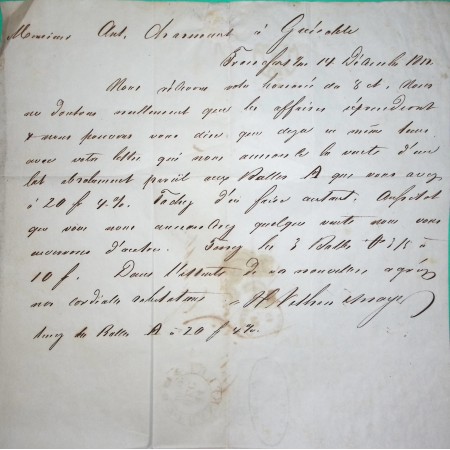 Monsieur Ant. Charmant à Grenoble
14 Décemb
Nous relevons votre honorée du 8 ct. Nous
ne doutons nullement que les affaires reprendront
& nous pouvons vous dire que deja en même temps
avec votre lettre qui nous annonce la vente d'un
lot absolument pareil aux Balles A que vous avez
à 20 f 4%. Tachez d'en faire autant. Aussitot
que vous nous annoncerez quelque vente nous vous
d'autre. les 3 Balles à
10 f. Dans l'attente de vos nouvelles agréez
nos cordiales salutations
les Balles A à 20 f 4%.